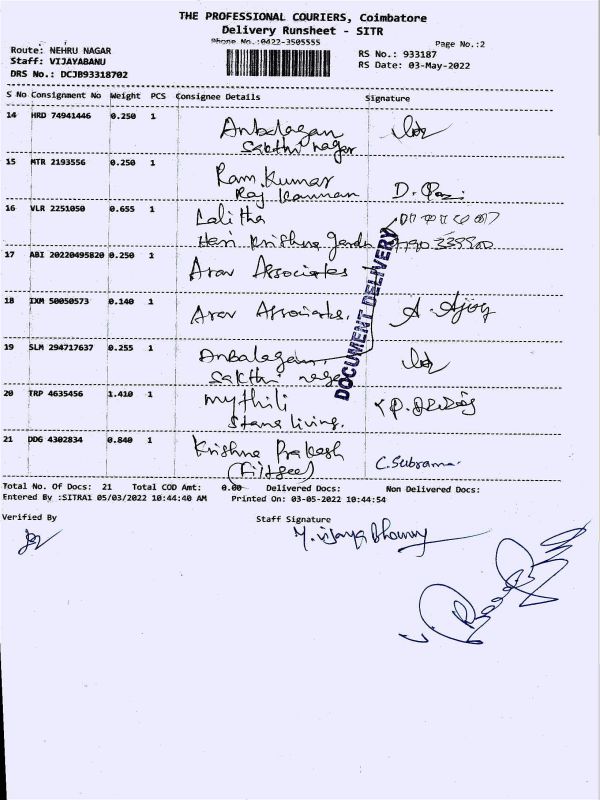 THE PROFESSIONAL COURIERS, Coimbatore
Delivery Runsheet - SITR
Phone No.:0422-3505555
Page No.:2
Route: NEHRU NAGAR
RS No.: 933187
Staff: VIJAYABANU
RS Date: 03-May-2022
DRS No.: DCJB93318702
S No Consignment No Weight PCS Consignee Details Signature
14 HRD 74941446 0.250 1 Anbalagan
Sakthi nagar
15 MTR 2193556 0.250 1 Ram Kumar
Raj Kannan
16 VLR 2251050 0.655 1 Lalitha
Hari Krishna
17 ABI 20220495820 0.250 1 Arav Associates
18 IXM 50050573 0.140 1 Arav Associates. A. Ajay
19 SLM 294717637 0.255 1 Anbalagan
Sakthi nagar
DOCUMENT DELIVERY
20 TRP 4635456 1.410 1 mythili
living.
21 DDG 4302834 0.840 1 Krishna Prakash
(Fiitjee) C. Subrama.
Total No. Of Docs: 21 Total COD Amt: 0.00 Delivered Docs: Non Delivered Docs:
Entered By :SITRA1 05/03/2022 10:44:40 AM Printed On: 03-05-2022 10:44:54
Verified By Staff Signature